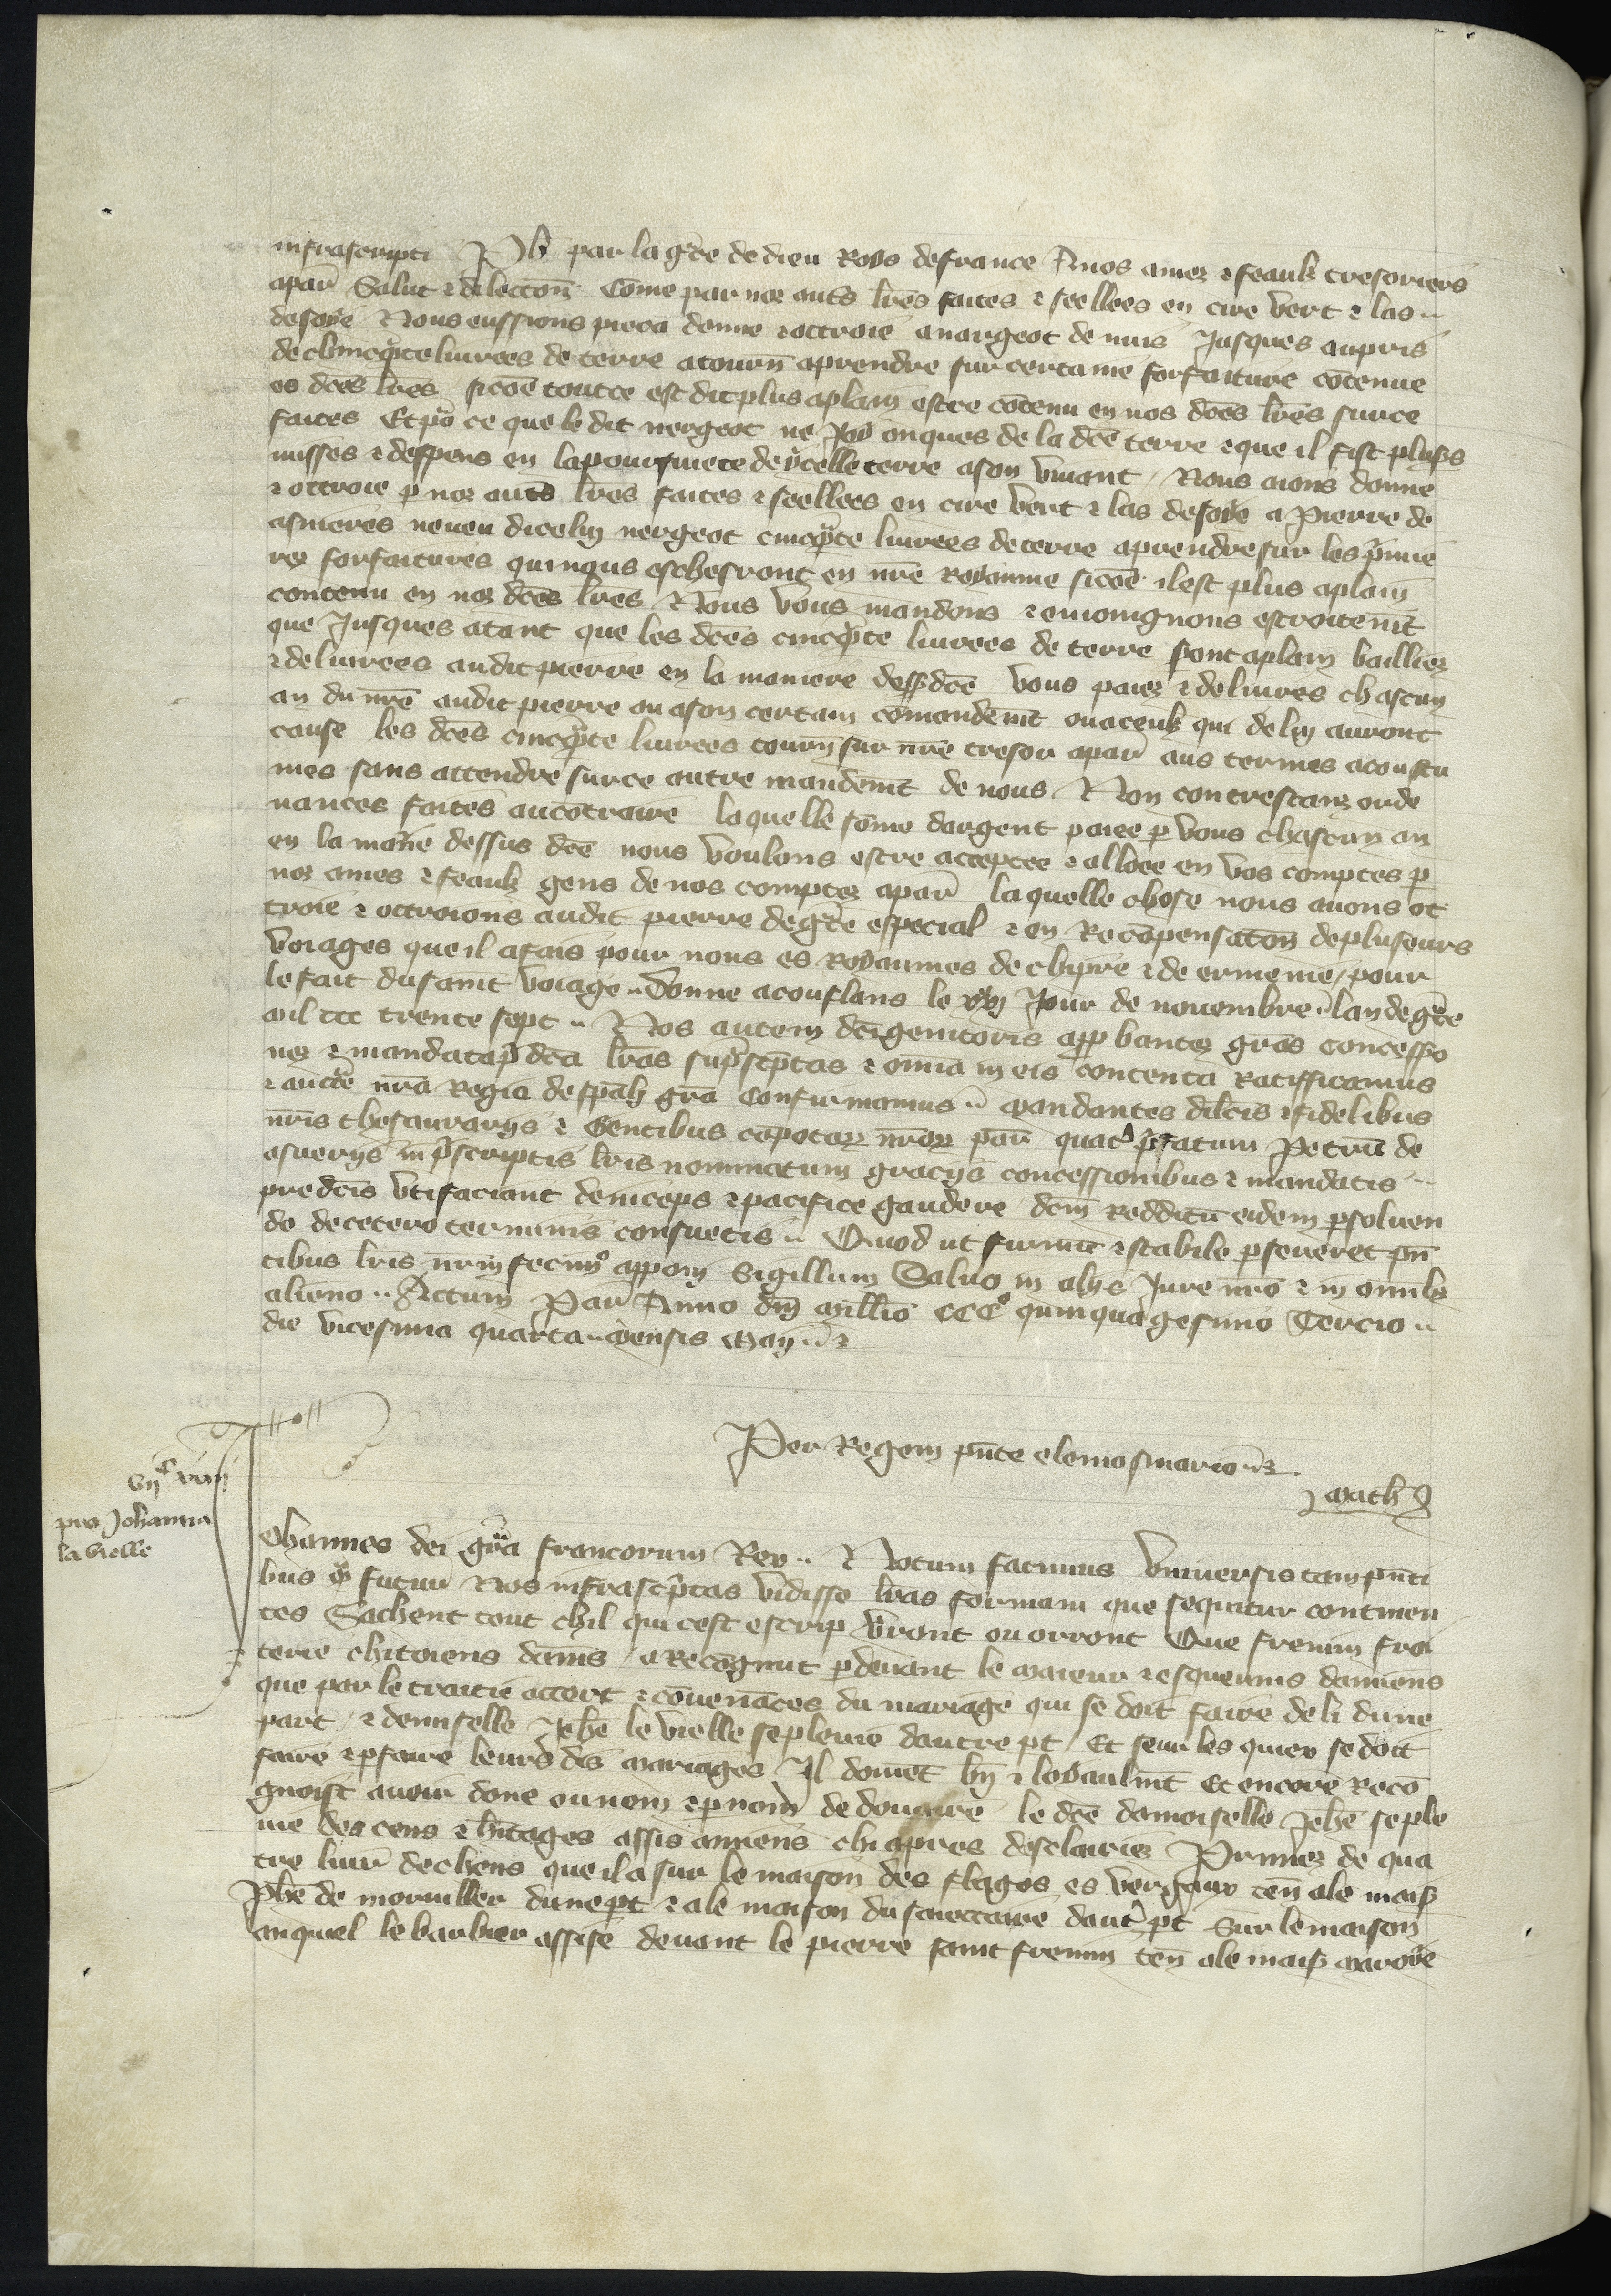 infrascripti Ph̄ par la gr̄ce de dieu Roys de france A nos amez ⁊ feaulz tresoriers
a par̄ Salut ⁊ dilection̄ Cōme par noz autr̄s lr̄es faites ⁊ seellees en cire vert ⁊ las
de soye Nous eussions pieca donne ⁊ ottroie a nargeot de jusques au pris
de cincq̄te livrees de terre a tourn̄ a prendre sur certaine forfaiture cōtenue
es dc̄es lr̄es sicōe tout ce est dit plus a plain estre cōtenu en nos dc̄es lr̄es sur ce
faites Et pō ce que le dit nergeot ne joy onques de la dc̄e terre ⁊ que il fist plus̄s
misses ⁊ despens en la poursuiete de ycelle terre a son vivant Nous aions donne
⁊ ottroie p̄ noz autr̄s lr̄es faites ⁊ seellees en cire vert ⁊ las de soye a Pierre de
asnieres neveu dicelui nergeot cincq̄te livrees de terre a prendre sur les p̄mie
res forfaitures qui nous escherront en nr̄e Royaume sicōe il est plus a plain
contenu en noz dc̄es lr̄es Nous vous mandons ⁊ enioingnons estroitem̄t
que jusques a tant que les dc̄es cincq̄te livrees de terre sont a plain baillies
⁊ delivrees audit pierre en la maniere dess̄ dc̄e vous paiez ⁊ delivres chascun
an du nr̄e audit pierre ou a son certain cōmandem̄t ou a ceulz qui de lui auront
cause les dc̄es cincq̄te livrees tourn̄ sur nr̄e tresor a par̄ aus termes acoustu
mes sans attendre sur ce autre mandem̄t de nous Non contrestanz orde
nances faites au cōtraire laquelle sōme dargent paiee p̄ vous chascun an
en la man̄ie dessus dc̄e nous voulons estre acceptee ⁊ alloee en vos comptes p̄
noz ames ⁊ feaulz gens de nos comptes a par̄ laquelle chose nous avons ot
troie ⁊ ottroions audit pierre de gr̄ce especial ⁊ en Recōpensatōn de pluseurs
voiages que il a fais pour nous es Royaumes de chipre ⁊ de ermenie pour
le fait du saint voiage Donne a conflans le jour de novembre lan de gr̄ce
mil ccc trente sept Nos autem dc̄i genitoris app̄bantes gr̄as concessio
nes ⁊ mandata p̄dc̄a lr̄as sup̄scp̄tas ⁊ omīa in eis contenta Ratifficamus
⁊ auctē nr̄a Regia de sp̄ali gr̄a Confirmamus Mandantes dilc̄is ⁊ fidelibus
nr̄is thesaurariis ⁊ Gentibus cōpotor̄ nr̄or̄ par̄ quatꝰ p̄fatum Petrū de
asneriis in p̄scriptis lr̄is nominatum graciis concessionibus ⁊ mandatis
predc̄is uti faciant deinceps ⁊ pacifice gaudere dcm̄ Redditū eidem p̄solven
do de cetero terminis consuetis Quod ut firmū ⁊ stabile p̄severet pn̄
tibus lr̄is nr̄m fecimꝰ apponi Sigillum Salvo in aliis jure nr̄o ⁊ in omīb;
alieno Actum Par̄ Anno dn̄i mill̄io CCCº quinquagesimo Tercio
die vicesima quarta mensis May ⁊
Per Regem pn̄te elemosinario
Math
viiᶜ
pro Johanna
la vielle
Johannes dei gr̄a francorum Rex ⁊ Notum facimus Universis tam pn̄ti
bus q̄ futur̄ Nos infrascp̄tas vidisse lr̄as formam que sequitur continen
tes Sachent tout chil qui cest escrip v̄ront ou orront Que fremin froi
terie chitoiens dam̄s a Recōgnut p̄devant le maieur ⁊ esquevins damiens
que par le traitie accort ⁊ cōvenāces du mariage qui se doit faire de li dune
part ⁊ demiselle Jehē le vielle seplevie dautre pt̄ Et seur les quiex se doit
faire ⁊ p̄faire leurs dis mariages Il doivēt bn̄ ⁊ loyaulm̄t Et encore Recō
gnoist avoir dōne ou nom ⁊ p̄ nom de douaire le dc̄e damoiselle Jehē seple
vie des cens ⁊ h̄itages assis amiens chi apres desclairies Primes de qua
tre livr̄ de chens que il a sur le maison des flagos es vergaux ten̄ a le mais̄
Jehē de morviller dune pt̄ ⁊ a le maison du saiettaire daut̄ pt̄ Sur le maison
anquel le barbier assise devant le pierre saint fremin ten̄ a le mais̄ maroye